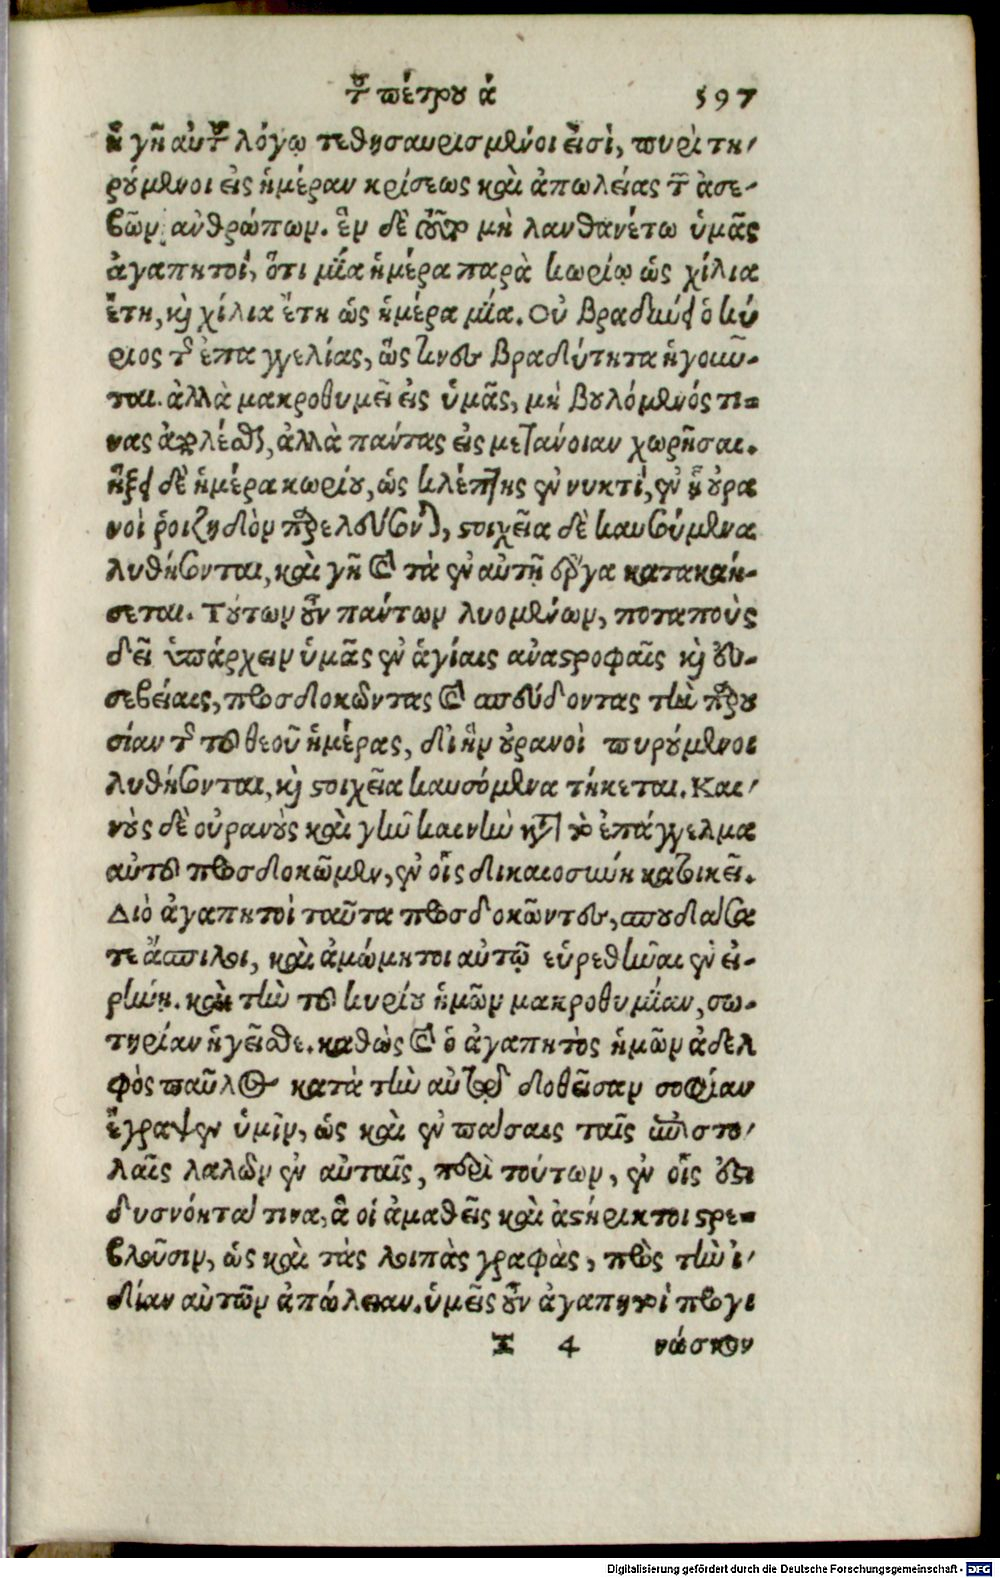 τοῦ πέτρου ά 597
ἡ γῆ αὐτοῦ λόγῳ τεθησαυρισμένοι εἰσὶ, πυρὶ τη-
ρούμενοι εἰς ἡμέραν κρίσεως καὶ ἀπωλείας τῶν ἀσε-
βῶν ἀνθρώπων. ἓν δὲ τοῦτο μὴ λανθανέτω ὑμᾶς
ἀγαπητοί, ὅτι μία ἡμέρα παρὰ κυρίῳ ὡς χίλια
ἔτη, καὶ χίλια ἔτη ὡς ἡμέρα μία. Οὐ βραδύνει ὁ κύ
ριος τῆς ἐπαγγελίας, ὥς τινες βραδύτητα ἡγοῦν-
ται. ἀλλὰ μακροθυμεῖ εἰς ὑμᾶς, μὴ βουλόμενός τι-
νας ἀπολέσθαι, ἀλλὰ πάντας εἰς μετάνοιαν χωρῆσαι.
ἥξει δὲ ἡμέρα κυρίου, ὡς κλέπτης ἐν νυκτί, ἐν ᾗ οὐρα
νοὶ ῥοιζηδὸν παρελεύσονται, στοιχεῖα δὲ καυσούμενα
λυθήσονται, καὶ γῆ καὶ τὰ ἐν αὐτῇ ἔργα κατακαή-
σεται. Τούτων οὖν πάντων λυομένων, ποταποὺς
δεῖ ὑπάρχειν ὑμᾶς ἐν ἁγίαις αναστροφαῖς καὶ εὐ-
σεβείαις, προσδοκῶντας καὶ σπεύδοντας τὴν παρου
σίαν τῆς τοῦ θεοῦ ἡμέρας, δι ἣν οὐρανοὶ πυρούμενοι
λυθήσονται, καὶ στοιχεῖα καυσόμενα τήκεται. Και-
νοὺς δὲ οὐρανοὺς καὶ γῆν καινὴν κατὰ τὸ ἐπάγγελμα
αὐτοῦ προσδοκῶμεν, ἐν οἷς δικαιοσύνη κατοικεῖ.
Διὸ ἀγαπητοὶ ταῦτα προσδοκῶντες, σπουδάσα
τε ἄσπιλοι, καὶ ἀμώμητοι αὐτῷ εὑρεθῆναι ἐν εἰ-
ρήνῃ. καὶ τὴν τοῦ κυρίου ἡμῶν μακροθυμίαν, σω-
τηρίαν ἡγεῖσθε. καθὼς καὶ ὁ ἀγαπητὸς ἡμῶν ἀδελ
φὸς παῦλος κατὰ τὴν αὐτῷ δοθεῖσαν σοφίαν
ἔγραψεν ὑμῖν, ὡς καὶ ἐν πάσαις ταῖς ἐπιστο-
λαῖς λαλῶν ἐν αὐταῖς, περὶ τούτων, ἐν οἷς ἐστι
δυσνόητά τινα, ἃ οἱ ἀμαθεῖς καὶ ἀστήρικτοι στρε-
βλοῦσιν, ὡς καὶ τὰς λοιπὰς γραφὰς, πρὸς τὴν ἰ-
δίαν αὐτῶν ἀπώλειαν. ὑμεῖς οὖν ἀγαπητοὶ προγι
T 4 νώσκον
Digitalisierung gefördert durch die Deutsche Forschungsgemeinschaft - DFG